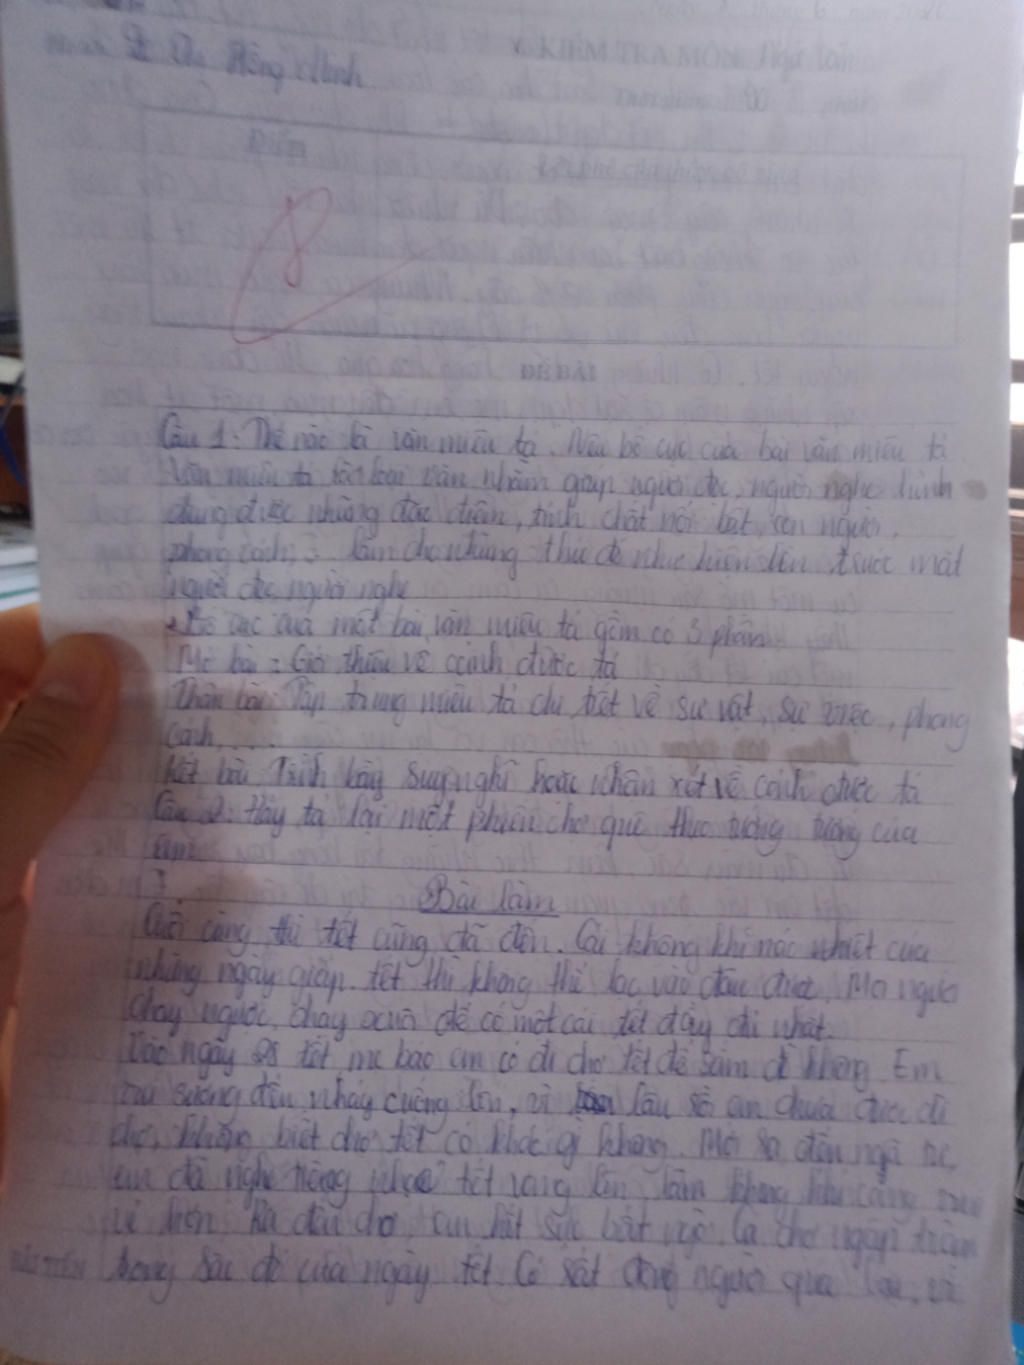 Ngày tháng 6 năm 20
KIỂM TRA MÔN: Ngữ Văn
Hồng Minh
Thời gian: 90 phút
Điểm
Lời phê của thầy cô giáo
8
ĐỀ BÀI
Câu 1: Thế nào là văn miêu tả. Nêu bố cục của bài văn miêu tả
Văn miêu tả là loại văn nhằm giúp người đọc, người nghe hình
dung được những đặc điểm, tính chất nổi bật, con người,
phong cảnh, làm cho những thứ đó như hiện lên trước mắt
người đọc người nghe
Bố cục của một bài văn miêu tả gồm có 3 phần
Mở bài: Giới thiệu về cảnh được tả
Thân bài: Tập trung miêu tả chi tiết về sự vật, sự việc, phong
cảnh,...
Kết bài: Trình bày suy nghĩ hoặc nhận xét về cảnh được tả
Câu 2: Hãy tả lại một phiên chợ quê theo tưởng tượng của
em
Bài làm
Cuối cùng thì tết cũng đã đến. Cái không khí náo nhiệt của
những ngày giáp tết thì không thể lạc vào đâu được. Mọi người
chạy ngược, chạy xuôi để có một cái tết đầy đủ nhất.
Vào ngày 28 tết mẹ bảo em có đi chợ tết để sắm đồ không. Em
vui sướng đến nhảy cuống lên, vì lâu rồi em chưa được đi
chợ, không biết chợ tết có khác gì không. Mới ra đến ngã tư,
em đã nghe tiếng nhạc tết vang lên, làm không khí càng vui
vẻ hơn. Ra đến chợ, em hết sức bất ngờ. Cả chợ ngập tràn
trong sắc đỏ của ngày tết. Có rất đông người qua lại, vì
HẢI TIẾN